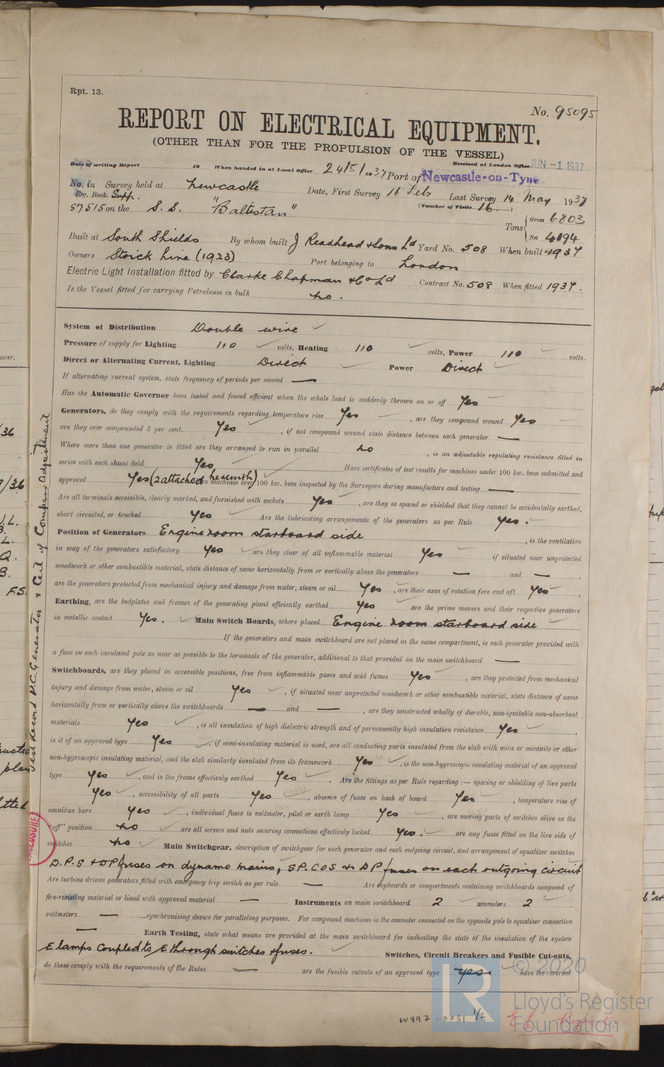 Rpt. 13.
No. 95095
REPORT ON ELECTRICAL EQUIPMENT.
(OTHER THAN FOR THE PROPULSION OF THE VESSEL)
Received at London Office JUN -1 1937
Date of writing Report 19 When handed in at Local Office 24/5/1937 Port of Newcastle-on-Tyne
No. in Survey held at Newcastle Date, First Survey 16 Feb Last Survey 14 May 1937
Reg. Book. Supp. (Number of Visits 16)
87515 on the S.S. "Baltistan" Tons Gross 6803
Net 4094
Built at South Shields By whom built J Readhead & Sons Ld Yard No. 508 When built 1937
Owners Strick Line (1923) Port belonging to London
Electric Light Installation fitted by Clarke Chapman & Co Ld Contract No. 508 When fitted 1937.
Is the Vessel fitted for carrying Petroleum in bulk no.
System of Distribution Double wire
Pressure of supply for Lighting 110 volts, Heating 110 volts, Power 110 volts.
Direct or Alternating Current, Lighting Direct Power Direct
If alternating current system, state frequency of periods per second —
Has the Automatic Governor been tested and found efficient when the whole load is suddenly thrown on or off Yes
Generators, do they comply with the requirements regarding temperature rise Yes, are they compound wound Yes
are they over compounded 5 per cent. Yes, if not compound wound state distance between each generator —
Where more than one generator is fitted are they arranged to run in parallel no, is an adjustable regulating resistance fitted in
series with each shunt field Yes Have certificates of test results for machines under 100 kw. been submitted and
approved Yes (2 attached herewith) machines over 100 kw. been inspected by the Surveyors during manufacture and testing —
Are all terminals accessible, clearly marked, and furnished with sockets Yes, are they so spaced or shielded that they cannot be accidentally earthed,
short circuited, or touched Yes Are the lubricating arrangements of the generators as per Rule Yes.
Position of Generators Engine room starboard side, is the ventilation
in way of the generators satisfactory Yes are they clear of all inflammable material Yes if situated near unprotected
woodwork or other combustible material, state distance of same horizontally from or vertically above the generators — and —,
are the generators protected from mechanical injury and damage from water, steam or oil Yes, are their axes of rotation fore and aft Yes
Earthing, are the bedplates and frames of the generating plant efficiently earthed Yes are the prime movers and their respective generators
in metallic contact Yes. Main Switch Boards, where placed Engine room starboard side
If the generators and main switchboard are not placed in the same compartment, is each generator provided with
a fuse on each insulated pole as near as possible to the terminals of the generator, additional to that provided on the main switchboard —
Switchboards, are they placed in accessible positions, free from inflammable gases and acid fumes Yes, are they protected from mechanical
injury and damage from water, steam or oil Yes, if situated near unprotected woodwork or other combustible material, state distance of same
horizontally from or vertically above the switchboards — and —, are they constructed wholly of durable, non-ignitable non-absorbent
materials Yes, is all insulation of high dielectric strength and of permanently high insulation resistance Yes,
is it of an approved type Yes, if semi-insulating material is used, are all conducting parts insulated from the slab with mica or micanite or other
non-hygroscopic insulating material, and the slab similarly insulated from its framework Yes, is the non-hygroscopic insulating material of an approved
type Yes, and is the frame effectively earthed Yes. Are the fittings as per Rule regarding:— spacing or shielding of live parts
Yes, accessibility of all parts Yes, absence of fuses on back of board Yes, temperature rise of
omnibus bars Yes, individual fuses to voltmeter, pilot or earth lamp Yes, are moving parts of switches alive in the
"off" position no are all screws and nuts securing connections effectively locked Yes. are any fuses fitted on the live side of
switches no Main Switchgear, description of switchgear for each generator and each outgoing circuit, and arrangement of equalizer switches
D.P.S & DP fuses on dynamo mains, SP.COS & DP fuses on each outgoing circuit
Are turbine driven generators fitted with emergency trip switch as per rule. — Are cupboards or compartments containing switchboards composed of
fire-resisting material or lined with approved material — Instruments on main switchboard 2 ammeters 2
voltmeters — synchronising device for paralleling purposes. For compound machines is the ammeter connected on the opposite pole to equaliser connection
— Earth Testing, state what means are provided at the main switchboard for indicating the state of the insulation of the system
E lamps coupled to E through switches & fuses. Switches, Circuit Breakers and Fusible Cut-outs,
do these comply with the requirements of the Rules — are the fusible cutouts of an approved type yes have the reversed
© 2020
Lloyd's Register
Foundation
W992-0031 1/2
Test Record D.C. Generator & Cert. of Compass Adjustment